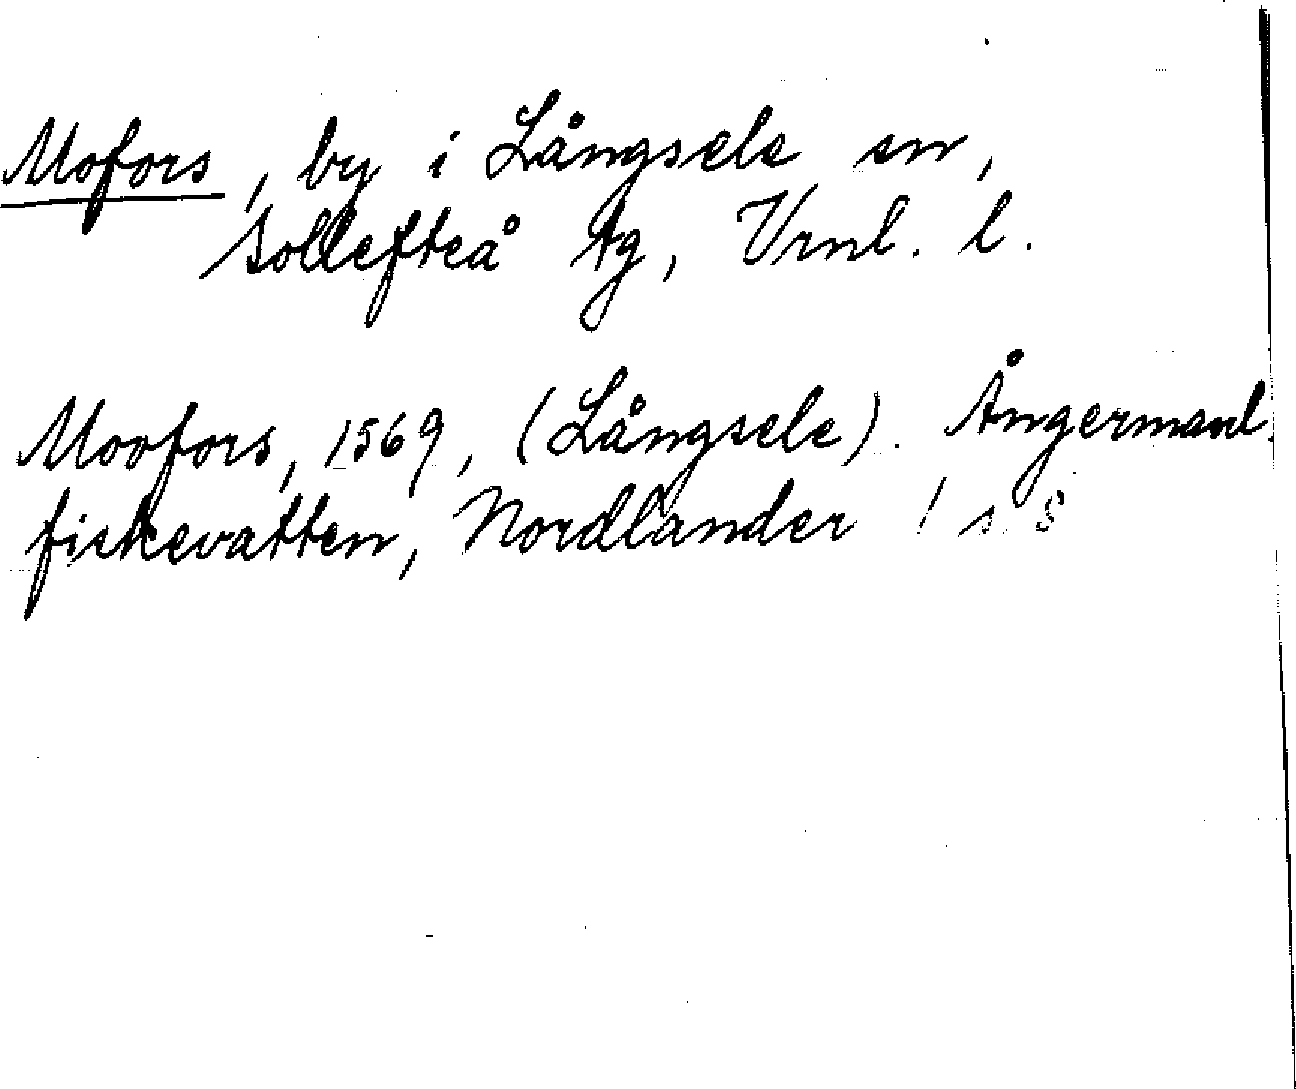 Mofors, by i Långsele sn,
Sollefteå tg, Vrnl. l.
Moofors, 1569, (Långsele). Ångermanl.
fiskevatten, Nordlander / s. 8